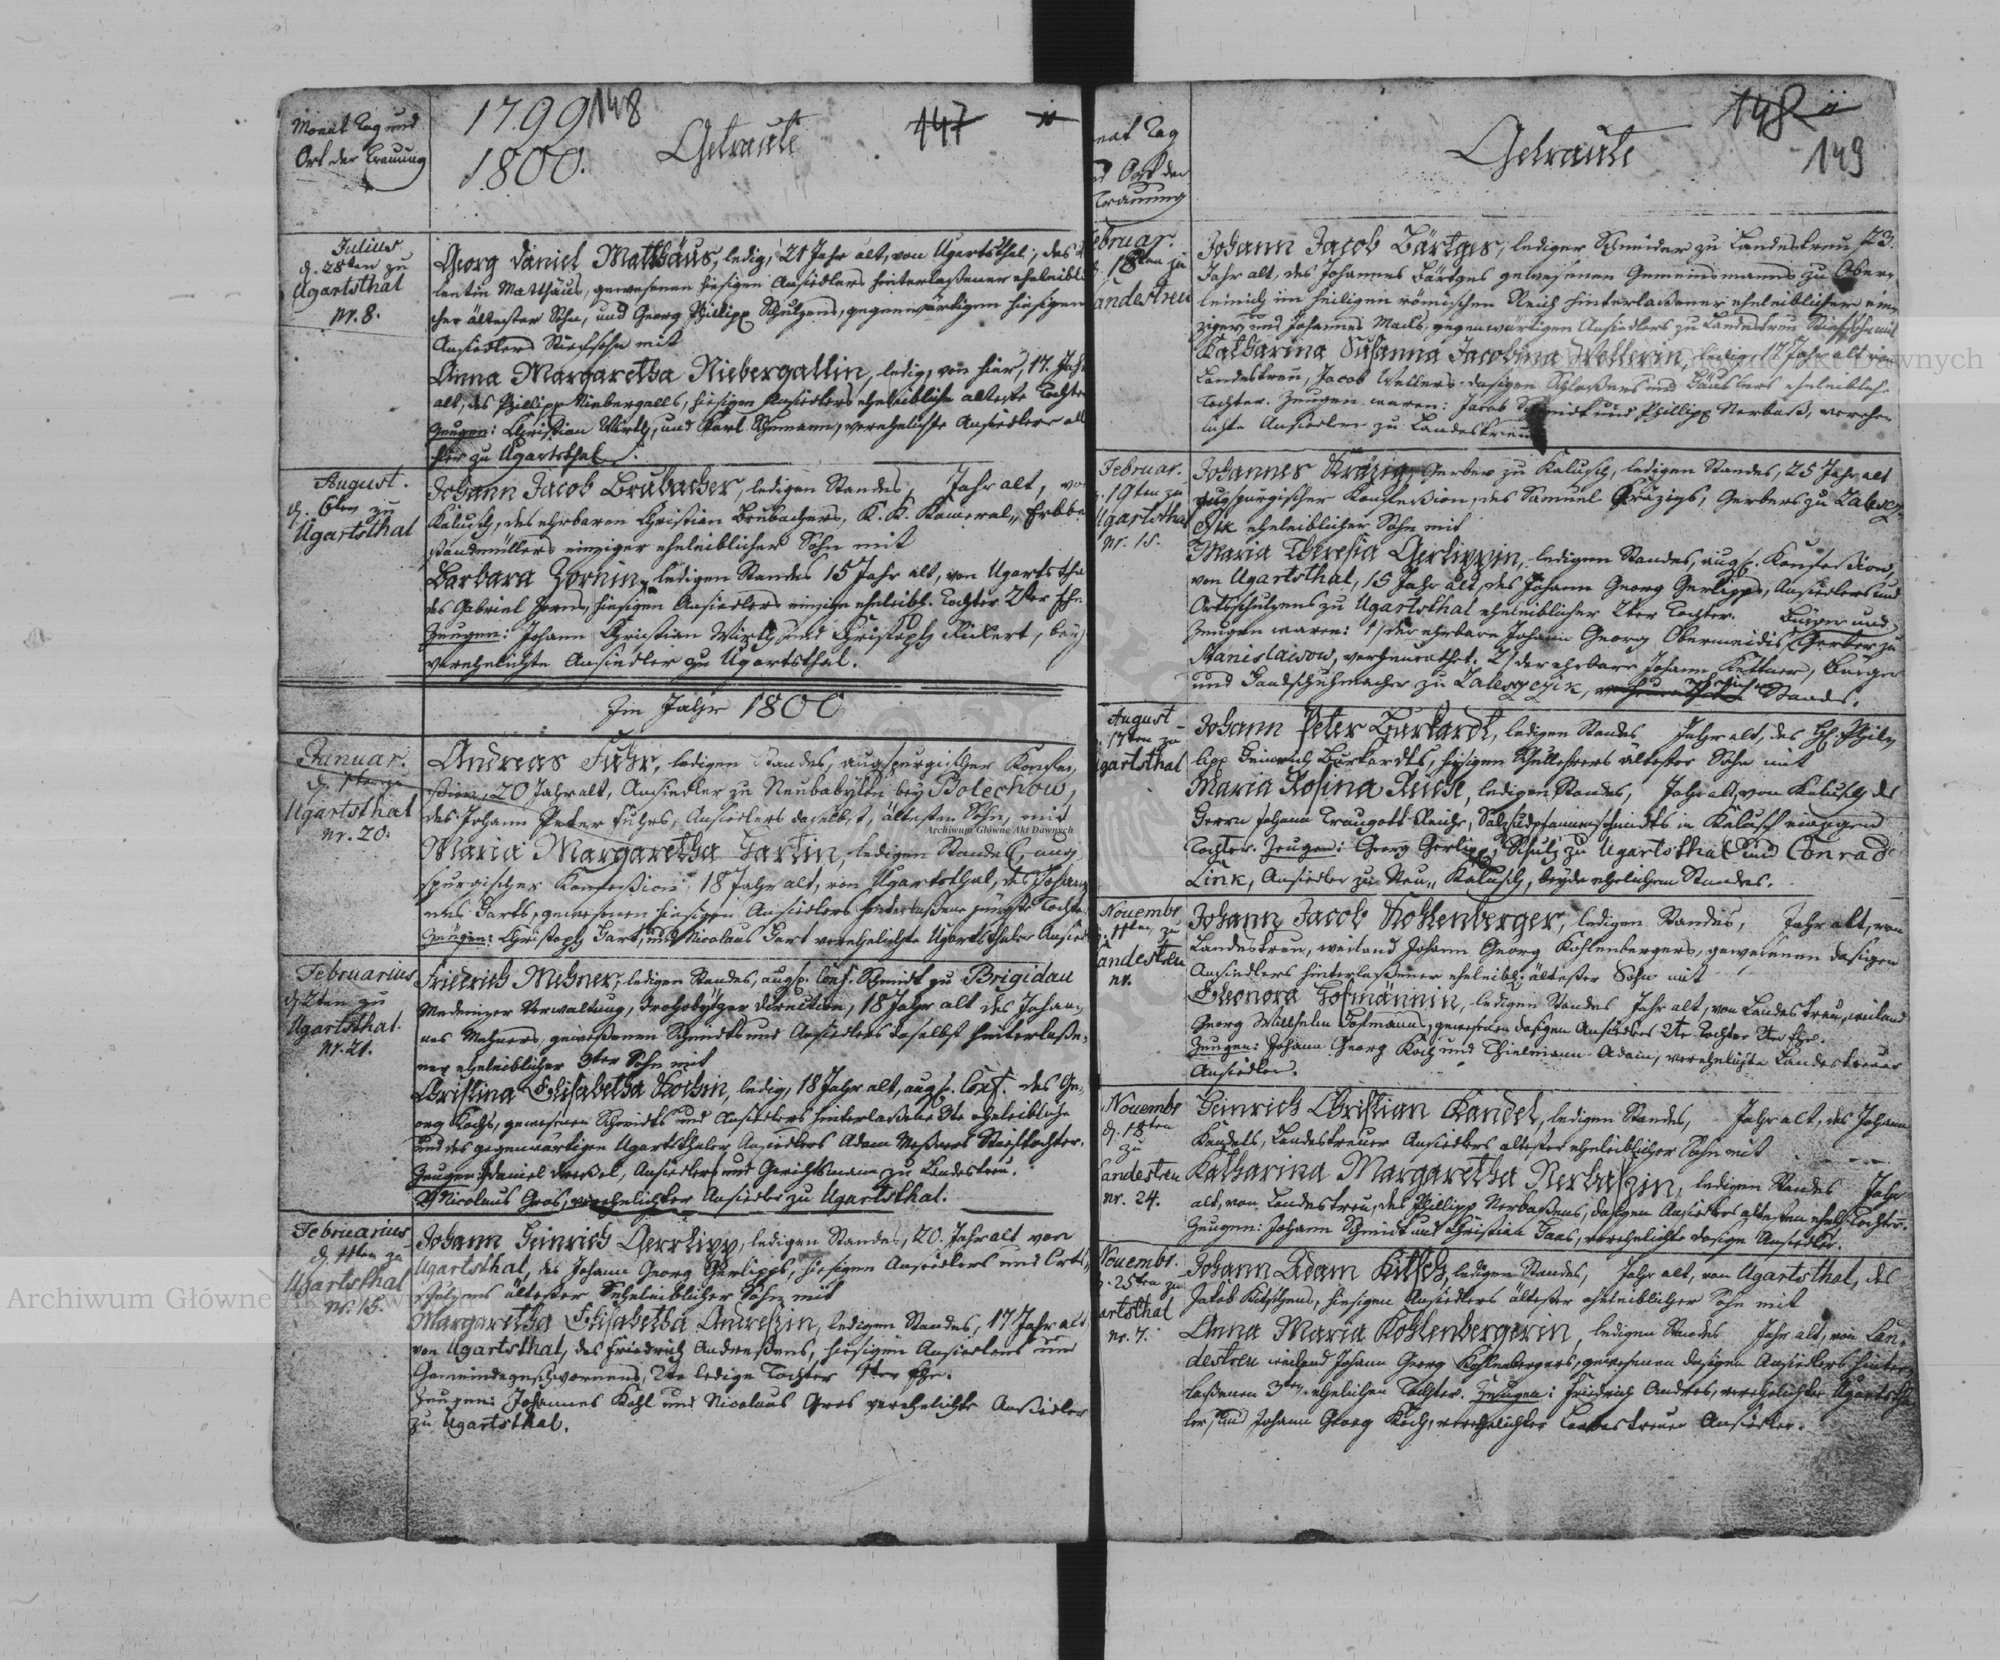 Monat Tag und
Ort der Trauung
1799 148
1800.
Getraute
147
Julius
d. 28ten zu
Ugartsthal
nr. 8.
Georg Daniel Matthäus, ledig, 21 Jahr alt, von Ugartsthal, des
lentin Matthäus, gewesenen hiesigen Ansiedlers hinterlaßener eheleibli
cher ältester Sohn, und Georg Phillipp Schulzens, gegenwärtigen hiesigen
Ansiedlers Stiefsohn mit
Anna Margaretha Niebergallin, ledig, von hier, 17. Jahr
alt, des Phillipp Niebergalls, hiesigen Ansiedlers eheleibliche älteste Tochter
Zeugen: Christian Wirth, und Karl Schumann, verehelichte Ansiedler all
hier zu Ugartsthal.
August.
d. 6ten zu
Ugartsthal
Johann Jacob Brubacher, ledigen Standes, Jahr alt, von
Kalusch, des ehrbaren Christian Brubachers, K. K. Kameral„ Erbbe
standmüllers einziger eheleiblicher Sohn mit
Barbara Zornin, ledigen Standes 15 Jahr alt, von Ugartstha
des Gabriel Zorns, hiesigen Ansiedlers einzige eheleibl. Tochter 2ter Ehe
Zeugen: Johann Christian Wirth und Christoph Rickert, bey
verehelichte Ansiedler zu Ugartsthal.
Im Jahr 1800
Januar.
d. 1ten zu
Ugartsthal
nr. 20.
Andreas Fuhr, ledigen Standes, augspurgischer Konfes„
sion, 20 Jahr alt, Ansiedler zu Neubabylon bey Bolechow,
des Johann Peter Fuhrs, Ansiedlers daselbst, ältester Sohn, mit
Maria Margaretha Hartin, ledigen Standes, aug
spurgischer Konfession 18 Jahr alt, von Ugartsthal, des Johan
nes Harts, gewesenen hiesigen Ansiedlers hinterlaßene jüngste Tochter
Zeugen: Christoph Hart, und Nicolaus Hart verehelichte Ugartsthaler Ansied
Februarius
d. 2ten zu
Ugartsthal.
nr. 21.
Friedrich Mehner, ledigen Standes, augsp. Conf. Schmidt zu Brigidau
Medenizer Verwaltung, Drohobytzer Direction, 18 Jahr alt des Johan„
nes Mehners, gewesenen Schmidts und Ansiedlers daselbst hinterlaße„
ner eheleiblicher 3ter Sohn mit
Christina Elisabetha Kochin, ledig, 18 Jahr alt, augsp. Conf. des Ge„
org Kochs, gewesenen Schmidts und Ansiedlers hinterlaßene 3te eheleibliche
und des gegenwärtigen Ugartsthaler Ansiedlers Adam Meßners Stieftochter.
Zeugen: Daniel Drexel, Ansiedler und Gerichtsmann zu Landestreu.
2) Nicolaus Gros, verehelichter Ansiedler zu Ugartsthal.
Februarius
d. 11ten zu
Ugartsthal
nr. 15.
Johann Heinrich Gerlipp, ledigen Standes, 20. Jahr alt von
Ugartsthal, des Johann Georg Gerlipps, hiesigen Ansiedlers und Orts„
schulzens ältester eheleiblicher Sohn mit
Margaretha Elisabetha Andreßin, ledigen Standes, 17 Jahr alt
von Ugartsthal, des Friedrich Andreßens, hiesigen Ansiedlers und
Gemeindegeschwornens, 2te ledige Tochter 1ter Ehe.
Zeugen: Johannes Kohl und Nicolaus Gros verehelichte Ansiedler
zu Ugartsthal.
nat Tag
d Ort der
Trauung
Getraute
148
149
ebruar.
18ten zu
andestreu
Johann Jacob Bärtges, lediger Schneider zu Landestreu 23.
Jahr alt, des Johannes Bärtges gewesenen Gemeinsmanns zu Ober
im heiligen römischen Reich hinterlaßener eheleiblicher ein
ziger und Johannes Macks, gegenwärtigen Ansiedlers zu Landestreu Stiefsohn mit
Katharina Susanna Jacobina Wellerin, ledig, 17 Jahr alt von
Landestreu, Jacob Wellers dasigen Schloßers und Häuslers eheleibliche
Tochter. Zeugen waren: Jacob Schmidt und Phillipp Nerbaß, verehe
lichte Ansiedler zu Landestreu
Februar.
19ten zu
Ugartstha
nr. 15.
Johannes Kräzig, Gerber zu Kalusch, ledigen Standes, 25 Jahr alt
augspurgischer Konfession, des Samuel Kräzigs, Gerbers zu Zalesz
czik eheleiblicher Sohn mit
Maria Theresia Gerlippin, ledigen Standes, augsp. Konfession,
von Ugartsthal, 15 Jahr alt, des Johann Georg Gerlipps, Ansiedlers und
Ortsschulzens zu Ugartsthal eheleiblicher 2ter Tochter. Bürger und
Zeugen waren: 1/ der ehrbare Johann Georg Gerber zu
Stanislawow, verheurathet. 2/ der ehrbare Johann Kettner, Bürger
und Handschuhmacher zu Zaleszczik, Stands.
August
17ten zu
gartsthal
Johann Peter Burkardt, ledigen Standes Jahr alt, des H. Phil
lipp Heinrich Burkardts, hiesigen Schullehrers ältester Sohn mit
Maria Rosina Reiche, ledigen Standes, Jahr alt, von Kalusch des
Herrn Johann Traugott Reichs, Salzsudpfannenschmidts in Kalusch einzigen
Tochter. Zeugen: Georg Gerlipp, Schulz zu Ugartsthal und Conrad
Link, Ansiedler zu Neu„ Kalusch, beyde ehelichen Standes.
Novembr.
11ten zu
andestreu
nr.
Johann Jacob Kohlenberger, ledigen Standes, Jahr alt, von
Landestreu, weiland Johann Georg Kohlenbergers, gewesenen dasigen
Ansiedlers hinterlaßener eheleibl. ältester Sohn mit
Eleonora Hofmännin, ledigen Standes Jahr alt, von Landestreu, weiland
Georg Willhelm Hofmanns, gewesenen dasigen Ansiedlers 2te Tochter 2ter Ehe.
Zeugen: Johann Georg Koch und Thielmann Adam, verehelichte Landestreuer
Ansiedler.
Novembr
d. 18ten
zu
andestreu
nr. 24.
Heinrich Christian Kandel, ledigen Standes, Jahr alt, des Johann
Kandels, Landestreuer Ansiedlers ältester eheleiblicher Sohn mit
Katharina Margaretha Nerbaßin, ledigen Standes Jahr
alt, von Landestreu, des Phillipp Nerbaßens, dasigen Ansiedlers ältesten ehel. Tochter.
Zeugen: Johann Schmidt und Christian Haas, verehelichte dasige Ansiedler.
Novembr.
25ten zu
artsthal
nr. 7.
Johann Adam Kitsch, ledigen Standes, Jahr alt, von Ugartsthal, des
Jakob Kitschens, hiesigen Ansiedlers ältester eheleiblicher Sohn mit
Anna Maria Kohlenbergerin, ledigen Standes Jahr alt, von Lan„
destreu weiland Johann Georg Kohlenbergers, gewesenen dasigen Ansiedlers hinter
laßenen 3ten ehelichen Tochter. Zeugen: Friedrich Andres, verehelichter Ugartstha
ler, und Johann Georg Koch, verehelichter Landestreuer Ansiedler.
Archiwum Główne Akt Dawnych
Archiwum Główne Akt Dawnych
Akt Dawnych